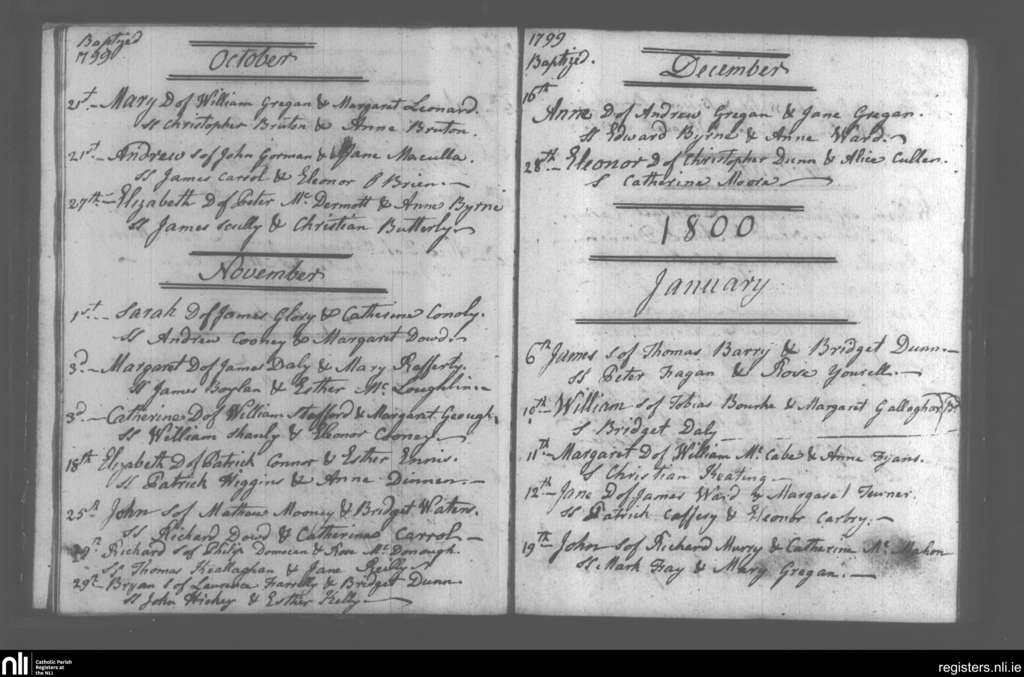 Baptized
1799
October
21st- Mary D of William Gregan & Margaret Leonard.
SS Christopher Bruton & Anne Bruton.
21st- Andrew S of John Gorman & Jane Maculla.
SS James Carrol & Eleonor O Brien.
27th- Elizabeth D of Peter Mc. Dermott & Anne Byrne
SS James Scully & Christian Butterly
November
1st- Sarah D of James Glory & Catherine Conoly.
SS Andrew Cooney & Margaret Dowd.
3d- Margaret D of James Daly & Mary Rafferty.
SS James Boylan & Esther Mc. Loughlin.
3d- Catherine D of William Stafford & Margaret Geough.
SS William Shanly & Eleonor Cooney
18th Elizabeth D of Patrick Connor & Esther Ennis.
SS Patrick Wiggins & Anne Dunnen.
25th John S of Mathew Mooney & Bridget Waters.
SS Richard Dowd & Catherine Carrol
Richard S of Philip Donnean & Rose Mc. Donough.
SS Thomas Keallaghan & Jane Reilly
29th- Bryan S of Laurence Farrelly & Bridget Dunn
SS John Hickey & Esther Kelly
1799
Baptized.
December
16th
Anne D of Andrew Gregan & Jane Gregan.
SS Edward Byrne & Anne Ward.
28th- Eleonor D of Christopher Dunn & Alice Cullen.
S Catherine Moore
1800
January
6th James S of Thomas Barry & Bridget Dunn.
SS Peter Fagan & Rose Yourell.
10th- William S of Tobias Bourke & Margaret Gallaghar
S Bridget Daly
11th- Margaret D of William Mc. Cabe & Anne Fyans.
S Christian Keating
12th- Jane D of James Ward & Margaret Turner.
SS Patrick Caffery & Eleonor Carbry.
19th- John S of Richard Murry & Catherine Mc. Mahon
SS Mark Fay & Mary Gregan.
nli Catholic Parish
Registers at
the NLI
registers.nli.ie